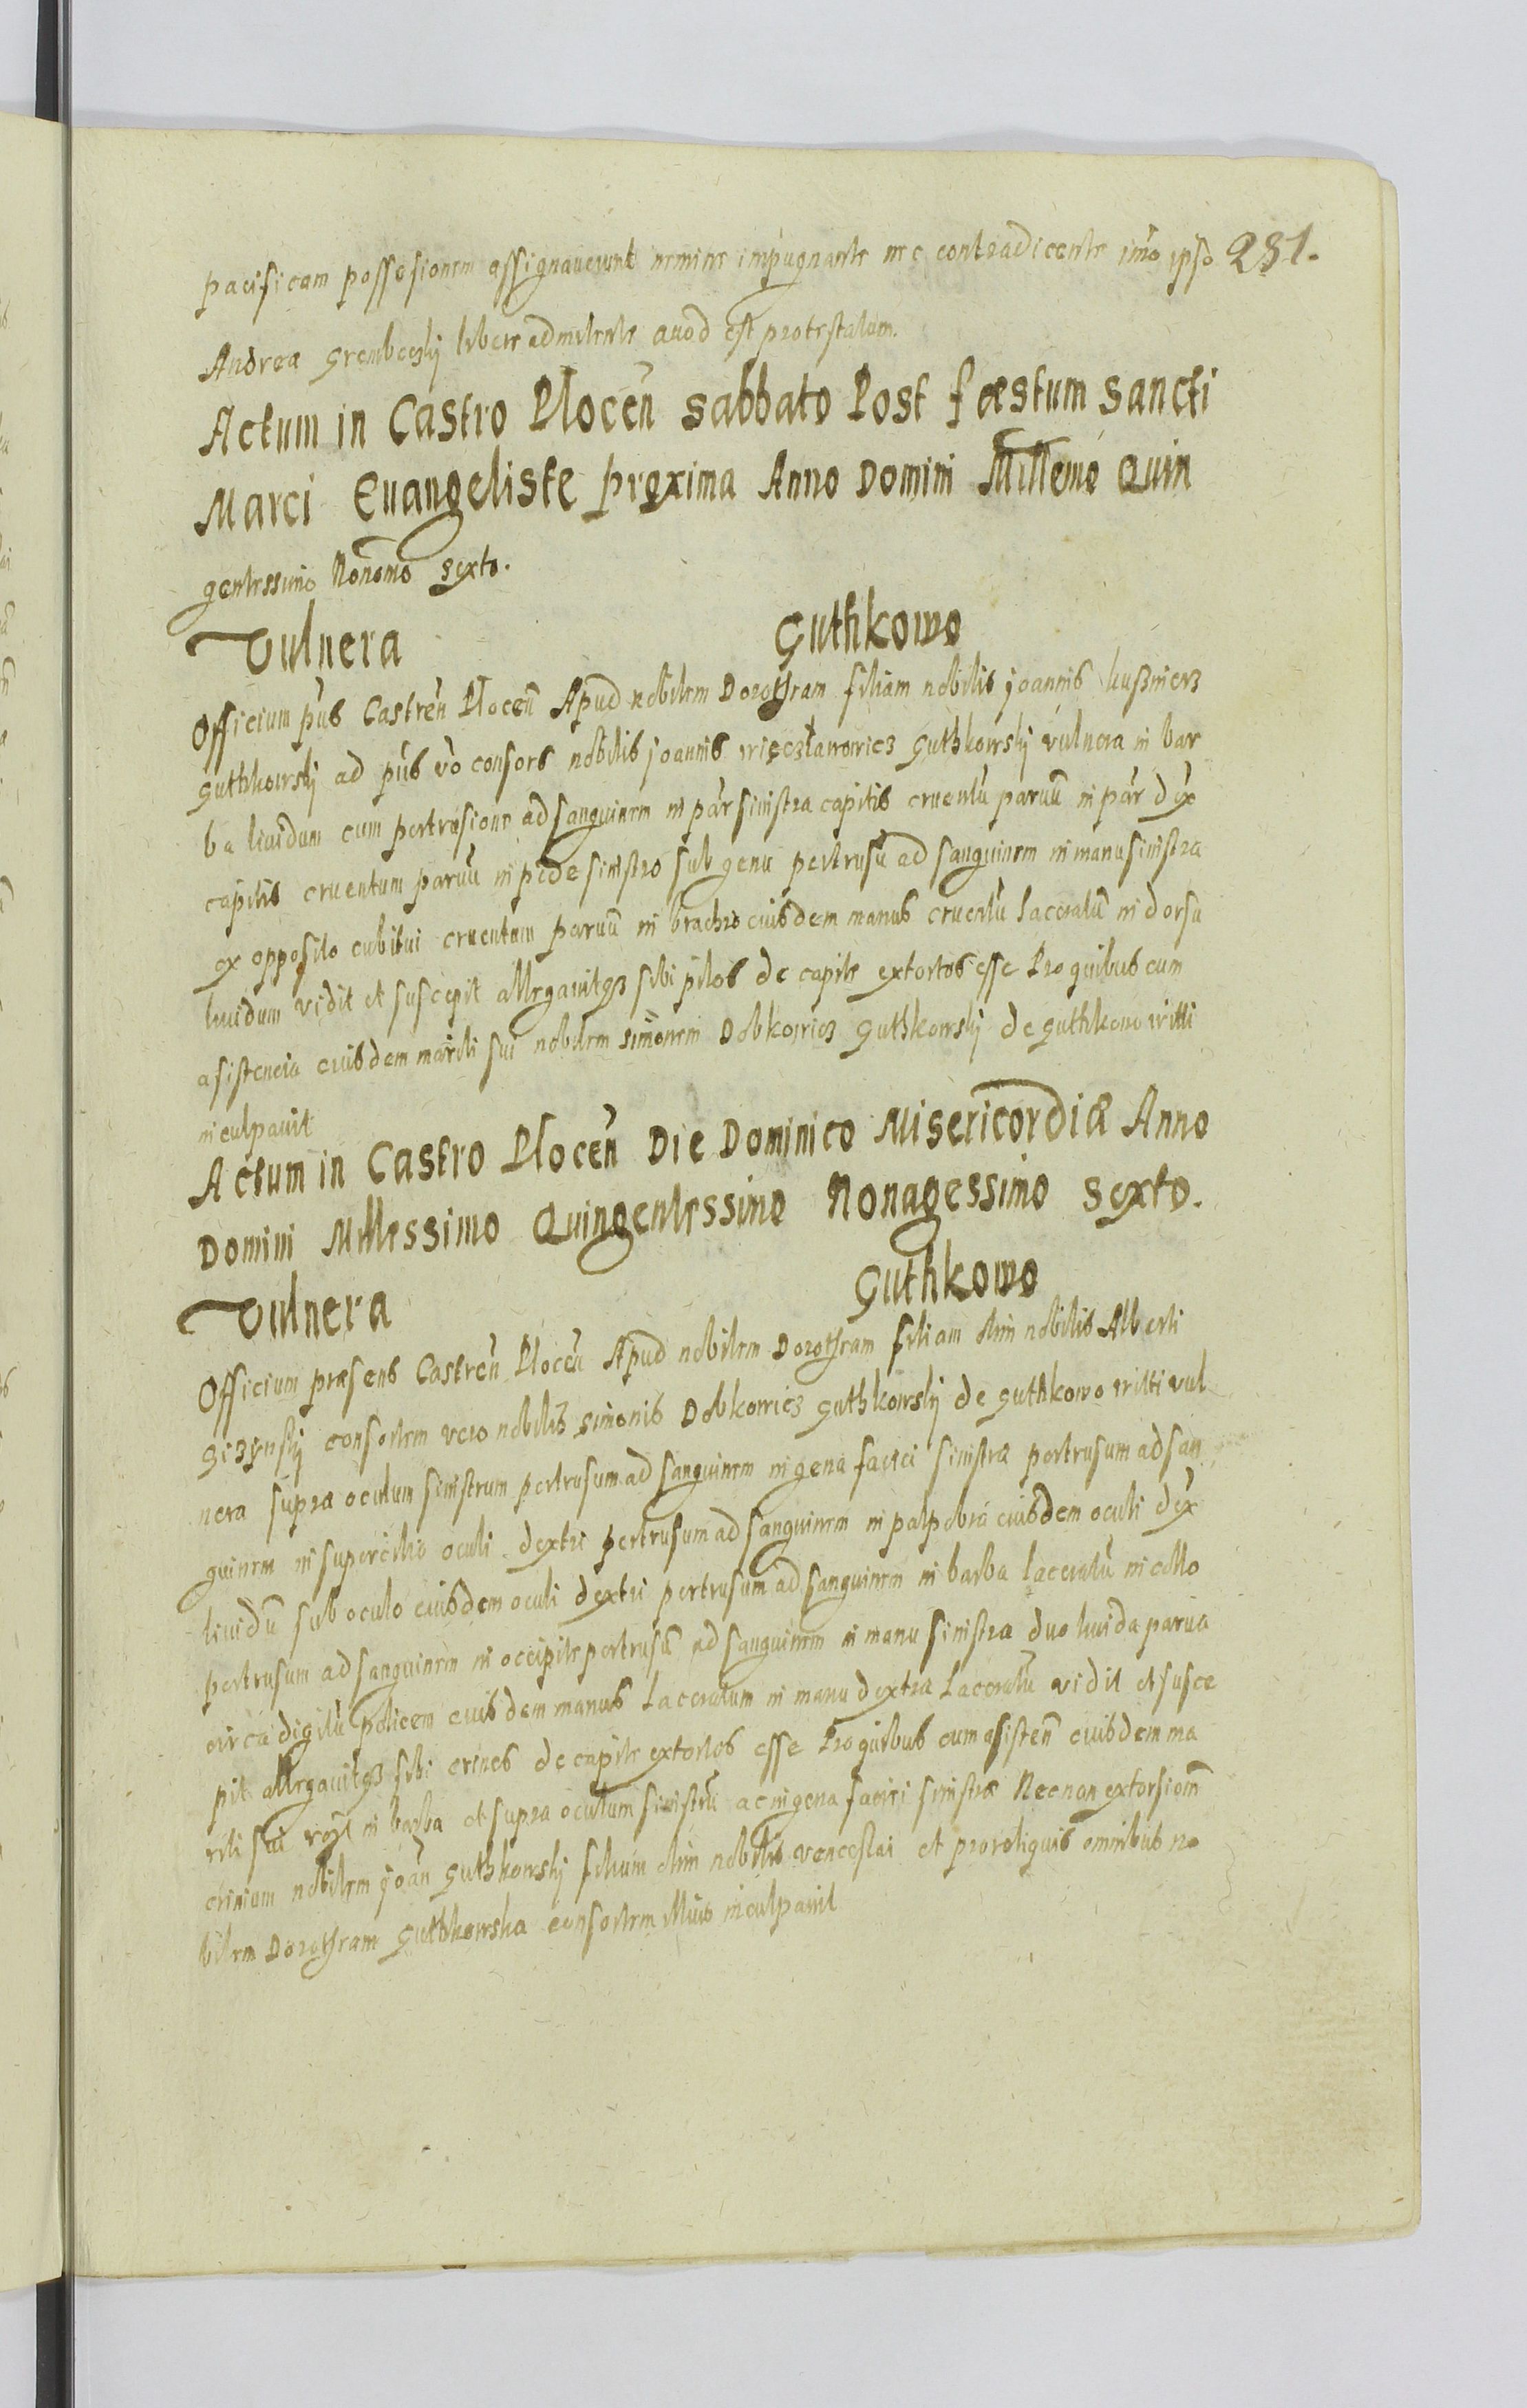 pacificam possesionem assignaverunt nemine impugnante nec contradicente imo ipso 231.
Andrea Grembeczky libere admitente quod est protestatum.
Actum in Castro Plocen̄ sabbato Post fæstum sancti
Marci Euangeliste proxima Anno Domini Millemo Quin
gentessimo Nonomo sexto.
Vulnera Guthkowo
Officium pn̄s Castren̄ Plocen̄ Apud nobilem Dorotheam filiam nobilis Joannis
Guthkowskj ad pn̄s vo consors nobilis Joannis Więczlawowicz Guthkowskj vulnera in bar
ba liuidum cum pertrusione ad sanguinem in par sinistra capitis cruentū paruū in par dex
capitis cruentum paruū in pede sinistro sub genu pertrusū ad sanguinem in manu sinistra
ex opposito cubitui cruentum paruū in brachio eiusdem manus cruentū laceratū in dorsu
liuidum vidit et suscepit allegauitqз sibi pilos de capite extortos esse Pro quibus cum
asistencia eiusdem mariti sui nobilem simonem Dobkowicz Guthkowskj de Guthkowo Witti
inculpauit
Actum in Castro Plocen̄ Die Dominico Misericordiæ Anno
Domini Millessimo Quingentessimo Nonagessimo sexto.
Vulnera Guthkowo
Officium præsens Castren̄ Plocen̄ Apud nobilem Dorotheam filiam olim nobilis Alberti
Gizÿnskj consortem vero nobilis simonis Dobkowicz Guthkowskj de Guthkowo Witti vul
nera supra oculum sinistrum pertrusum ad sanguinem in gena faciei sinistra pertrusum ad san
guinem in supercilio oculi dextri pertrusum ad sanguinem in palpebra eiusdem oculi dex
liuidū sub oculo eiusdem oculi dextri pertrusum ad sanguinem in barba laceratū in collo
pertrusum ad sanguinem in occipite pertrusū ad sanguinem in manu sinistra duo liuida parua
circa digitū policem eiusdem manus laceratum in manu dextra laceratū vidit et susce
pit allegauitqз sibi crines de capite extortos esse Pro quibus cum asisten̄ eiusdem ma
riti sui in barba et supra oculum sinistrū ac in gena faciei sinistra Necnon extorsionē
crinium nobilem Joan̄ Guthkowskj filium olim nobilis venceslai et pro reliquis omnibus no
bilem Dorotheam Guthkowska consortem illius inculpauit